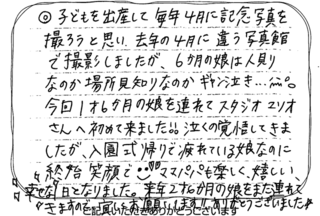 ◎子どもを出産して毎年4月に記念写真を
撮ろうと思い、去年の4月に違う写真館
で撮影しましたが、6か月の娘は人見り
なのか場所見知りなのかギャン泣き…
今回1才6か月の娘を連れてスタジオマリオ
さんへ初めて来ました!!泣くの覚悟してきま
したが、入園式帰りで疲れている娘なのに
終始笑顔で ママパパも楽しく、嬉しい、
幸せな日となりました。来年2才6か月の娘をまた連れて
きますので宜しくお願いします!!ありがとうございました
ご記入いただきありがとうございます